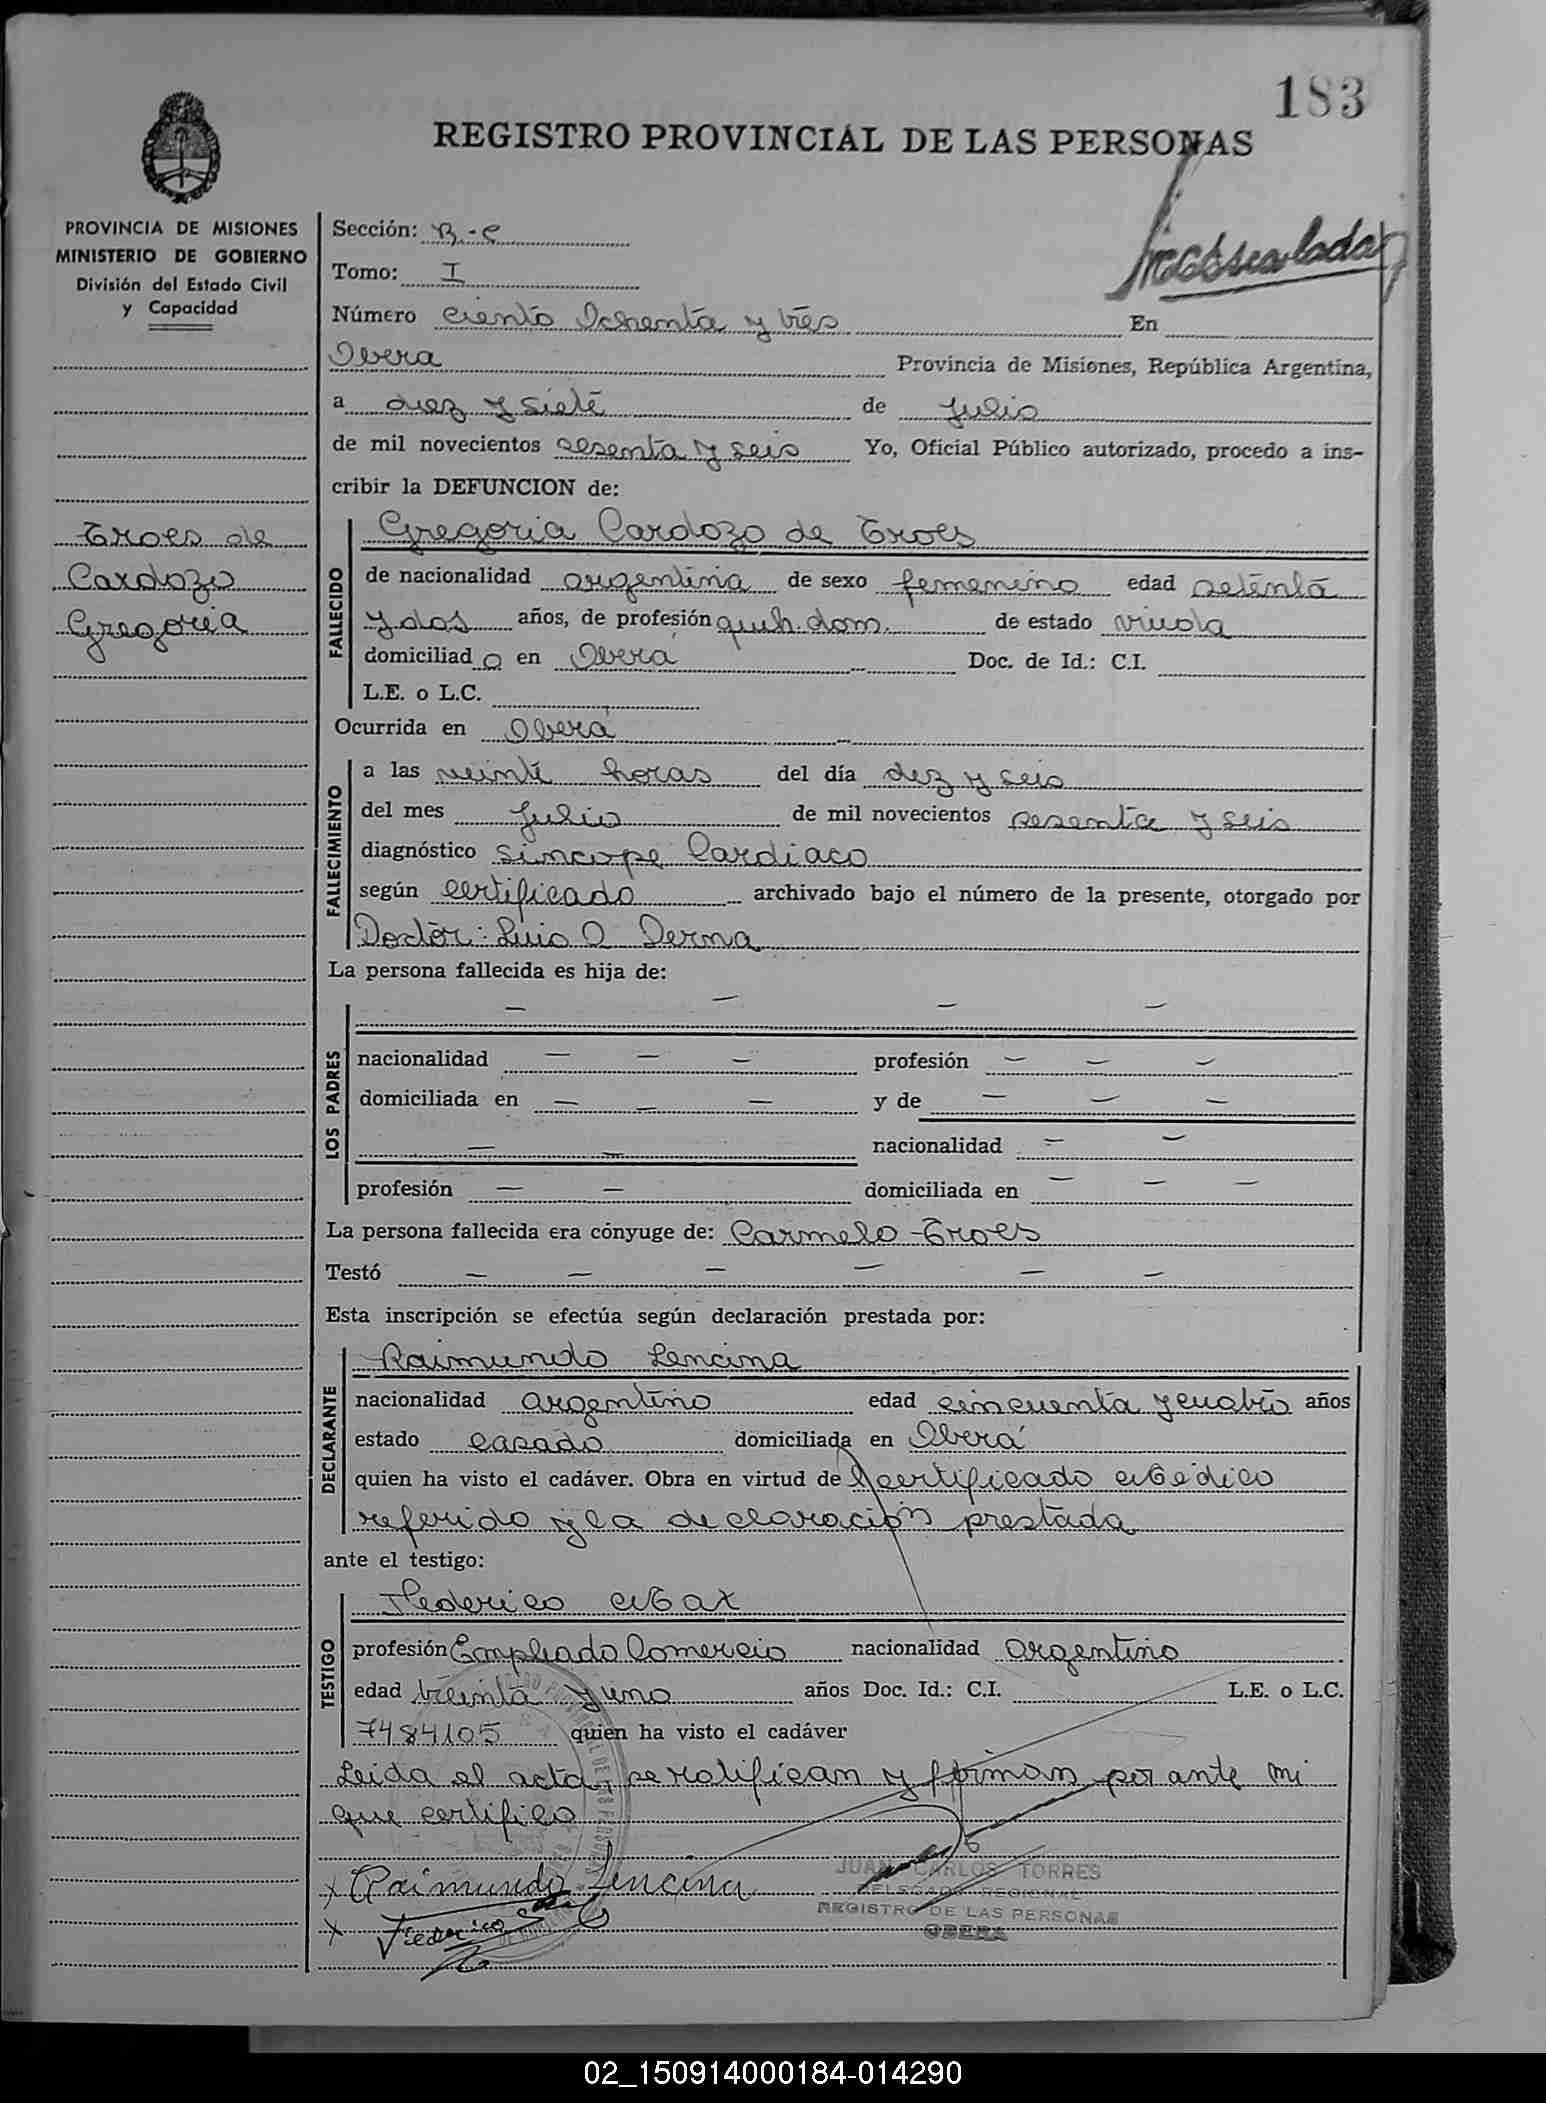 183
REGISTRO PROVINCIAL DE LAS PERSONAS
PROVINCIA DE MISIONES
MINISTERIO DE GOBIERNO
División del Estado Civil
y Capacidad
Troes de
Cardozo
Gregoria
Sección: B-C
Tomo: I
Número ciento Ochenta y tres En
Obera Provincia de Misiones, República Argentina,
a diez y siete de Julio
de mil novecientos sesenta y seis Yo, Oficial Público autorizado, procedo a ins-
cribir la DEFUNCION de:
FALLECIDO
Gregoria Cardozo de Troes
de nacionalidad argentina de sexo femenino edad setenta
y dos años, de profesión queh. dom. de estado viuda
domiciliad a en Oberá Doc. de Id.: C.I.
L.E. o L.C.
Ocurrida en Oberá
FALLECIMIENTO
a las veinte horas del día diez y seis
del mes Julio de mil novecientos sesenta y seis
diagnóstico sincope Cardiaco
según certificado archivado bajo el número de la presente, otorgado por
Doctor: Luis
La persona fallecida es hija de:
LOS PADRES
— — — —
nacionalidad — — — profesión — — —
domiciliada en — — — y de — — —
— — nacionalidad — —
profesión — — domiciliada en — — —
La persona fallecida era cónyuge de: Carmelo Troes
Testó — — — — — —
Esta inscripción se efectúa según declaración prestada por:
DECLARANTE
Raimundo Lencina
nacionalidad argentino edad cincuenta y cuatro años
estado casado domiciliada en Oberá
quien ha visto el cadáver. Obra en virtud del certificado Médico
referido y la declaración prestada
ante el testigo:
TESTIGO
Federico
profesión Empleado Comercio nacionalidad argentino
edad treinta y uno años Doc. Id.: C.I. L.E. o L.C.
7484105 quien ha visto el cadáver
Leida el acta, se ratifican y firman por ante mi
que certifico
x Raimundo Lencina
x Federico
JUAN CARLOS TORRES
DELEGADO REGIONAL
REGISTRO DE LAS PERSONAS
OBERA
02_150914000184-014290